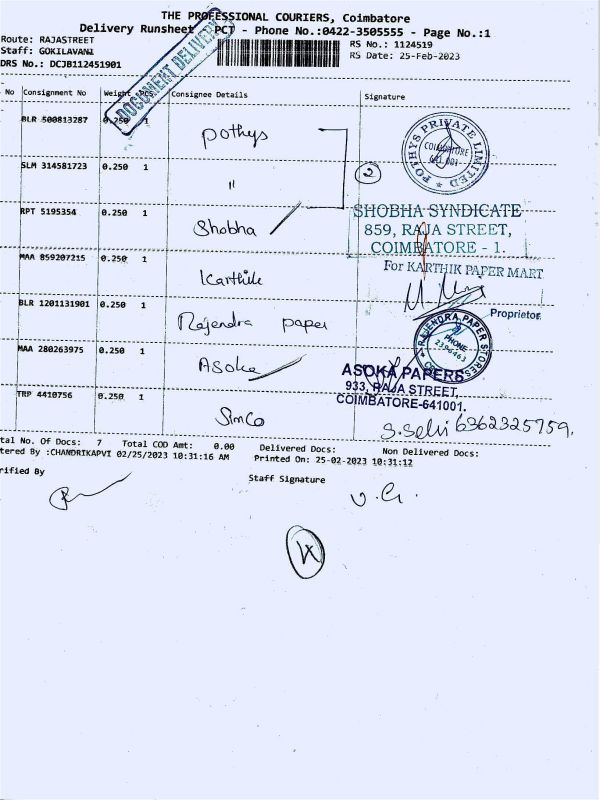 THE PROFESSIONAL COURIERS, Coimbatore
Delivery Runsheet PCT - Phone No.:0422-3505555 - Page No.:1
Route: RAJASTREET
RS No.: 1124519
Staff: GOKILAVANI
RS Date: 25-Feb-2023
DRS No.: DCJB112451901
DOCUMENT DELIVERY
No Consignment No Weight PCS Consignee Details Signature
BLR 500813287 0.250 1 Pothys
POTHYS PRIVATE LIMITED
COIMBATORE
641 001
SLM 314581723 0.250 1 "
2
RPT 5195354 0.250 1 Shobha
SHOBHA SYNDICATE
859, RAJA STREET,
COIMBATORE - 1.
MAA 859207215 0.250 1 Karthik
For KARTHIK PAPER MART
Proprietor
BLR 1201131901 0.250 1 Rajendra paper
RAJENDRA PAPER STORES
PHONE
2390463
MAA 280263975 0.250 1 Asoka
ASOKA PAPERS
933, RAJA STREET,
COIMBATORE-641001.
TRP 4410756 0.250 1 Simco
S.Selvi 6362325759.
tal No. Of Docs: 7 Total COD Amt: 0.00 Delivered Docs: Non Delivered Docs:
tered By :CHANDRIKAPVI 02/25/2023 10:31:16 AM Printed On: 25-02-2023 10:31:12
rified By
Staff Signature
V. G.